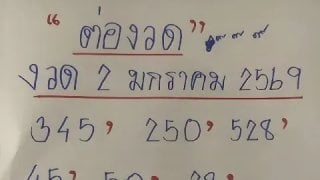 “ต่องวด” ๙ ๙ ๙
งวด 2 มกราคม 2569
345, 250, 528,